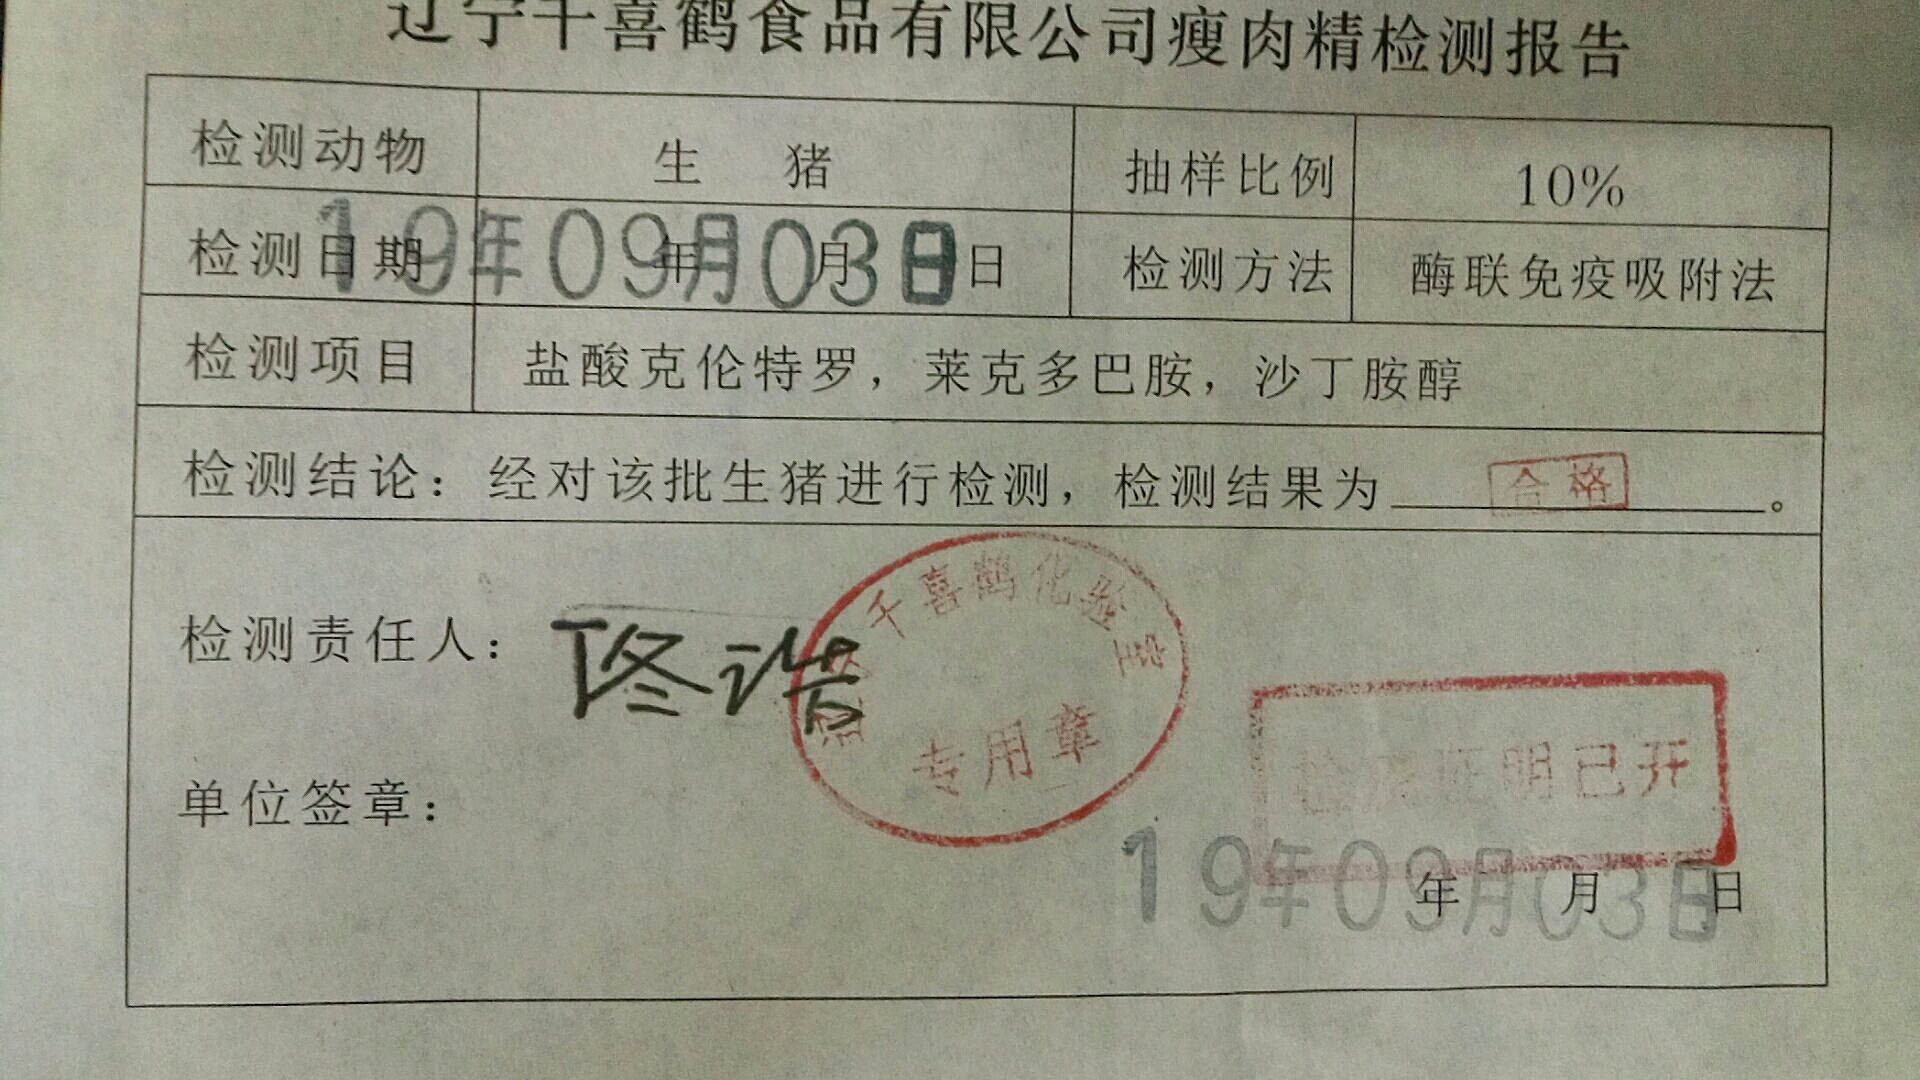 辽宁千喜鹤食品有限公司瘦肉精检测报告
检测动物 生 猪 抽样比例 10%
检测日期 年 月 日 检测方法 酶联免疫吸附法
19年09月03日
检测项目 盐酸克伦特罗，莱克多巴胺，沙丁胺醇
检测结论：经对该批生猪进行检测，检测结果为 合格 。
千喜鹤化验室
专用章
检测责任人：佟浩
证明已开
单位签章：
年 月 日
19年09月03日